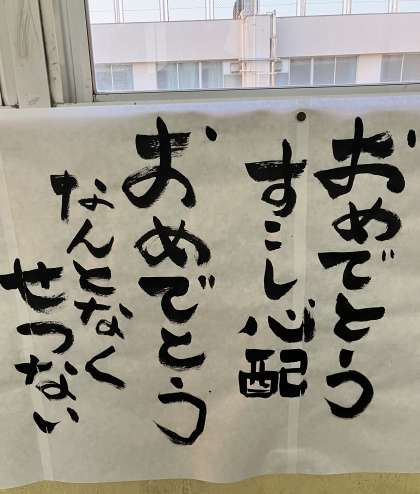 おめでとう
すこし心配
おめでとう
なんとなく
せつない